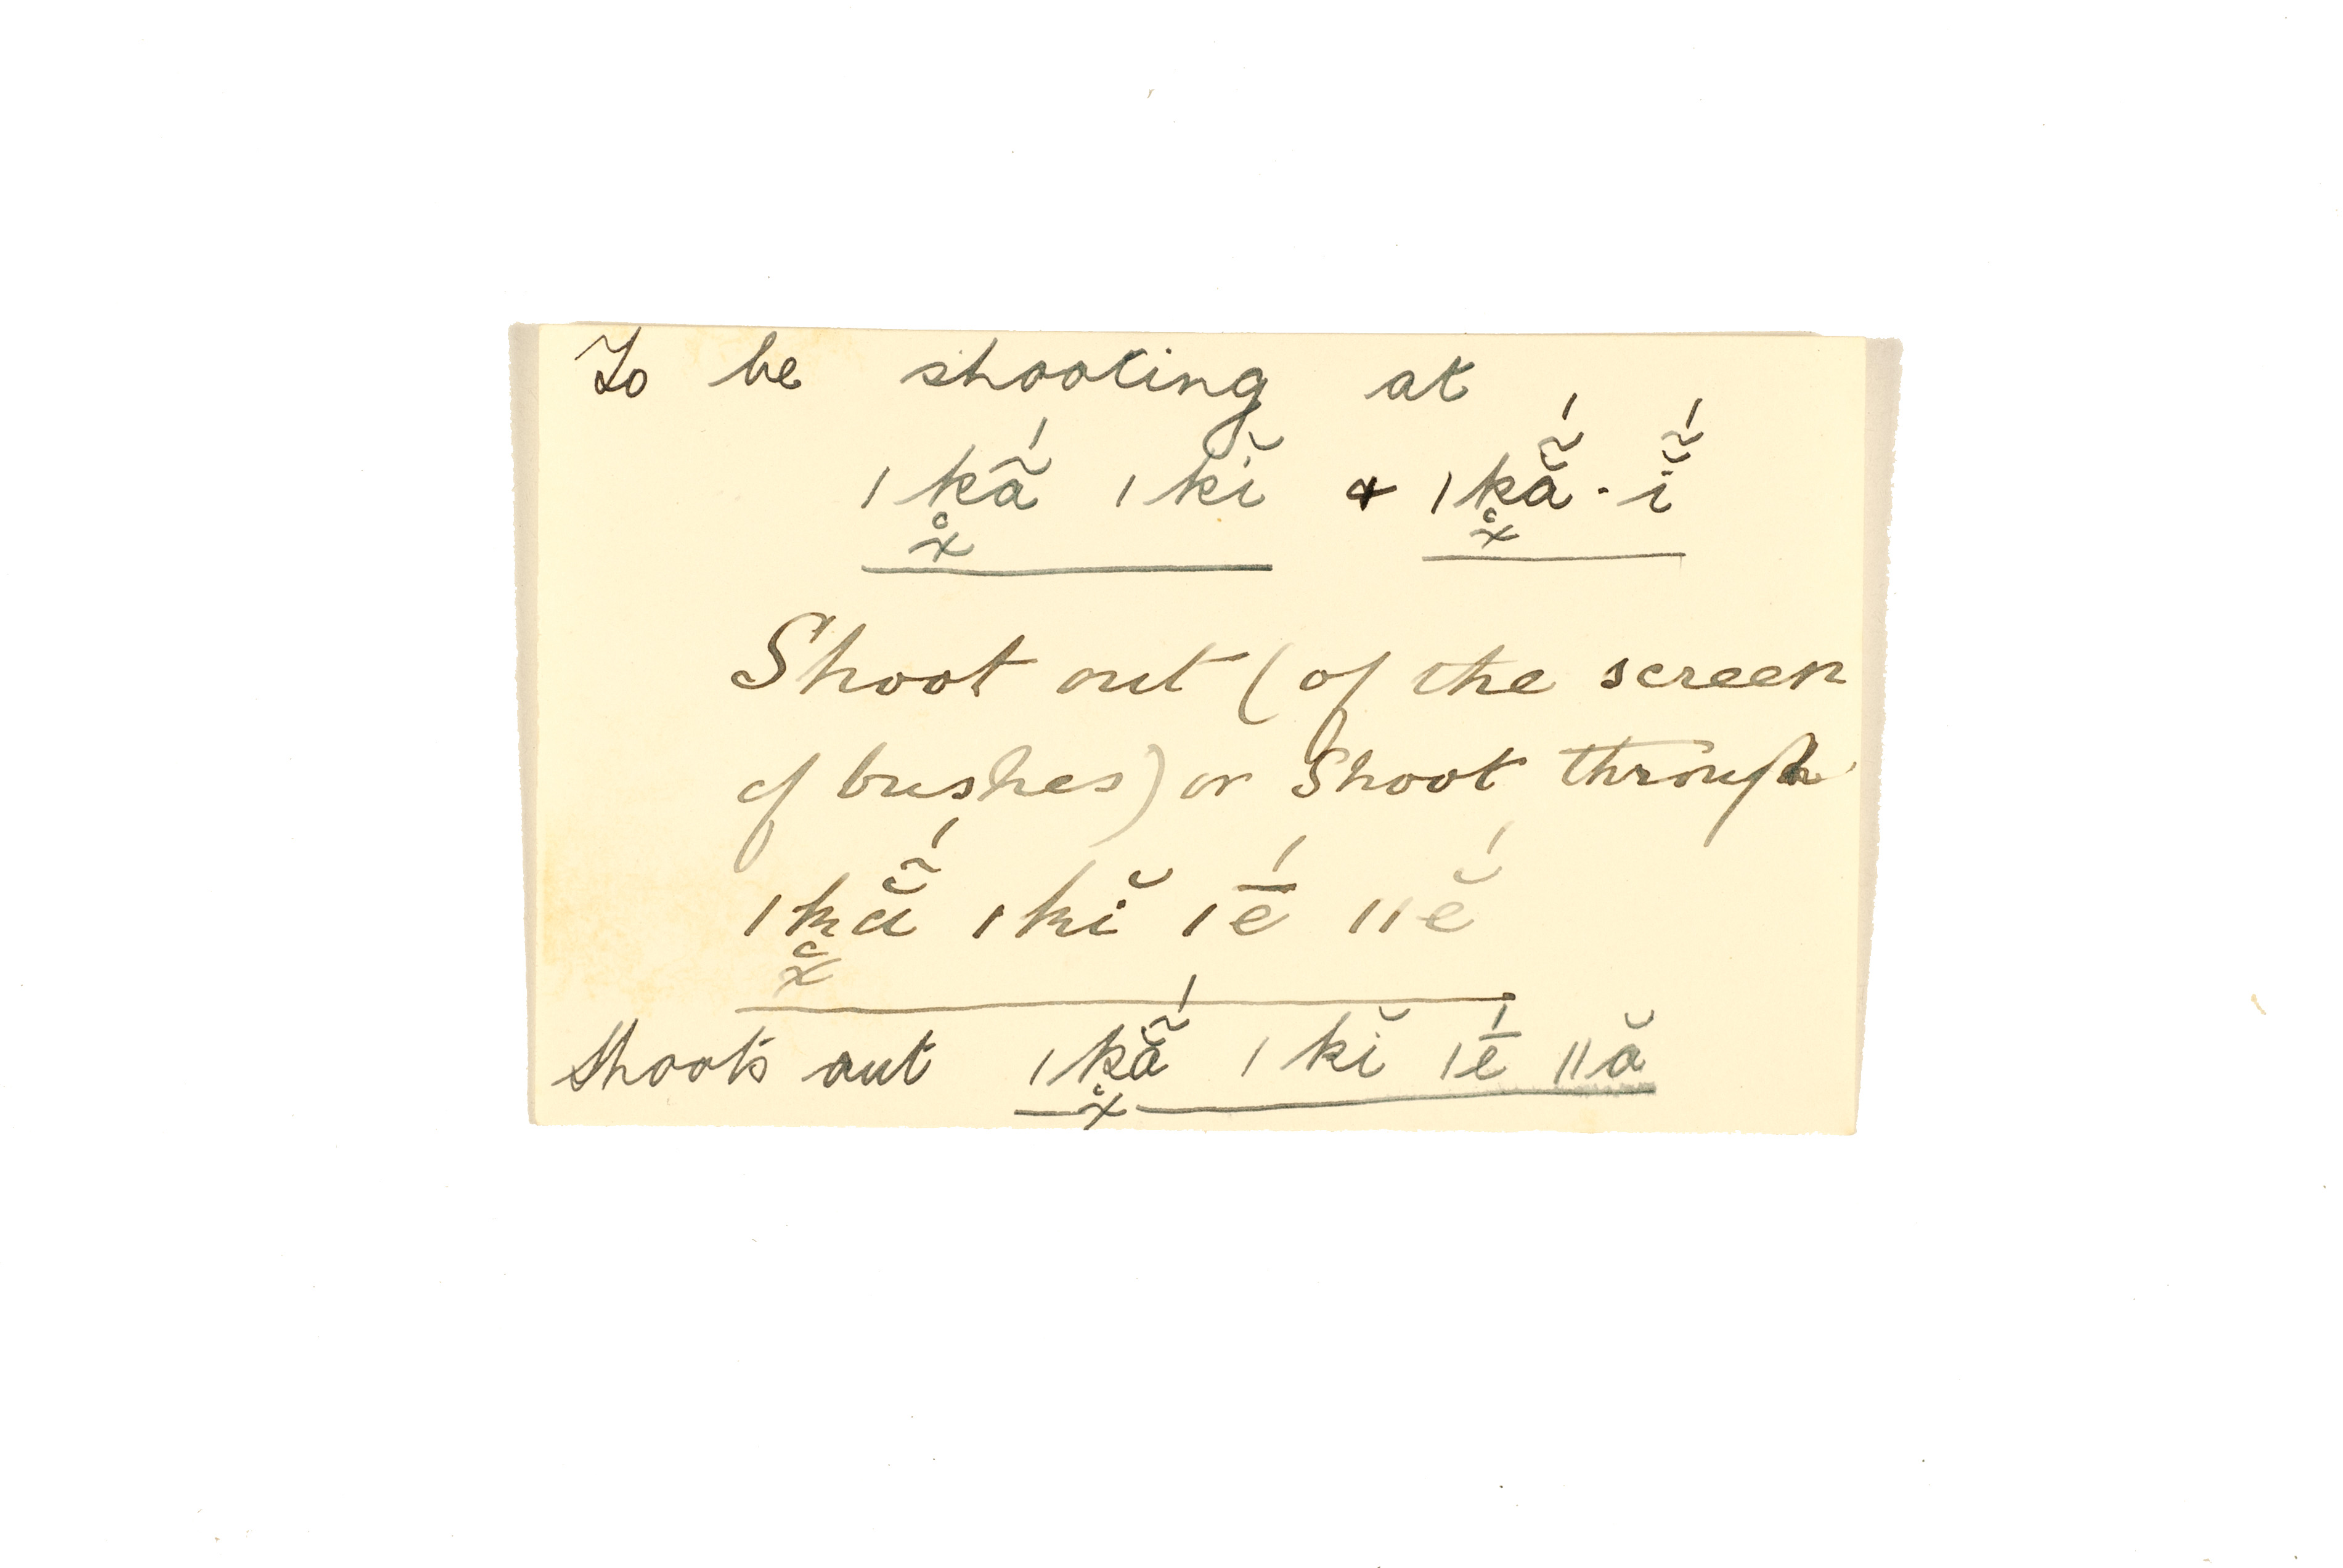 To be shooting at
|k͓̥ã́ |kĭ & |k͓̥ã̆́·ĭ̃́
Shoot out (of the screen
of bushes) or Shoot through
|k͓̥ã̆́ |kĭ |é̄ ||ĕ́
Shoots out |k͓̥ã̆́ |kĭ |é̄ ||ă